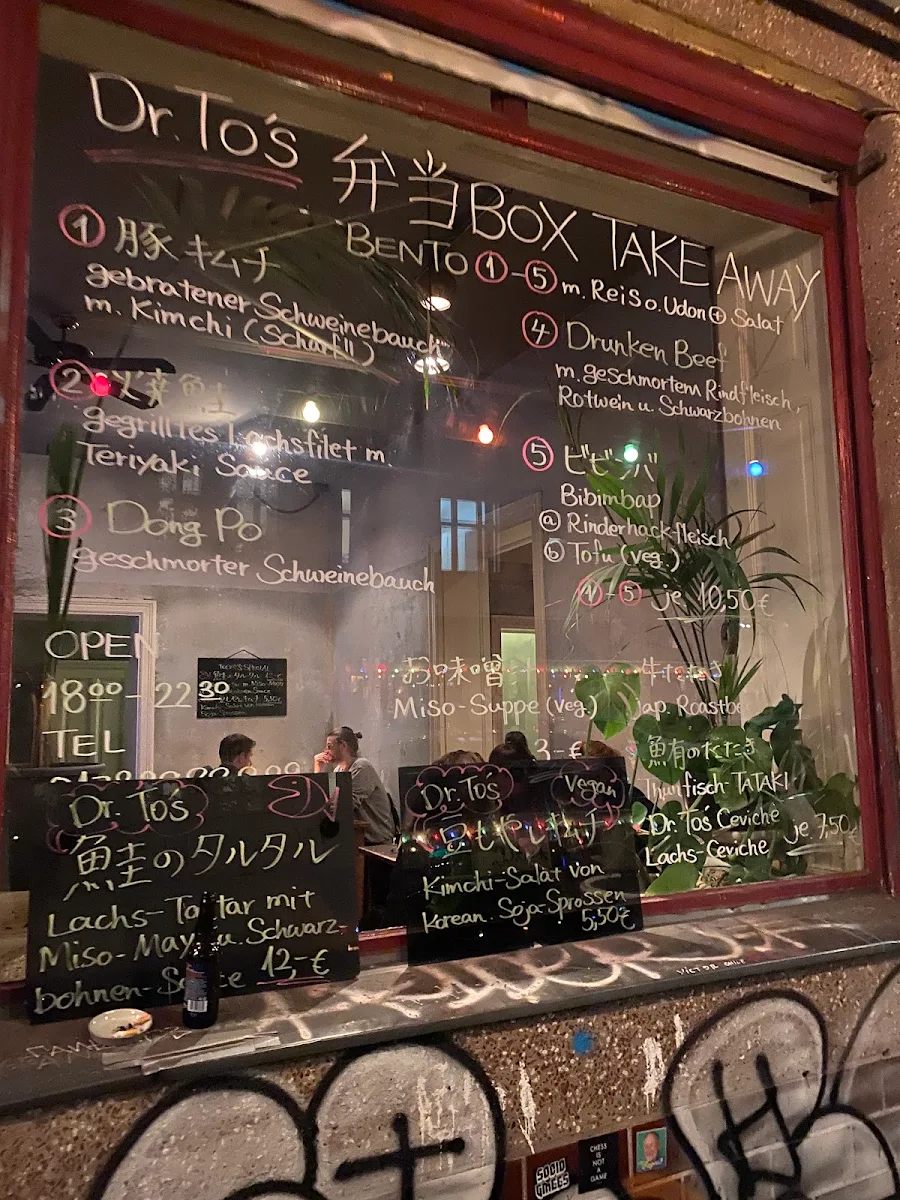 Dr. To's 弁当 BOX TAKE AWAY
BENTO ①-⑤ m. Reis o. Udon ⊕ Salat
① 豚キムチ
gebratener Schweinebauch
m. Kimchi (Scharf!!)
②
gegrilltes Lachsfilet m.
Teriyaki Sauce
③ Dong Po
geschmorter Schweinebauch
④ Drunken Beef
m. geschmortem Rindfleisch,
Rotwein u. Schwarzbohnen
⑤ ビビンバ
Bibimbap
ⓐ Rinderhackfleisch
ⓑ Tofu (veg.)
①-⑤ je 10,50€
OPEN
18⁰⁰-22³⁰
TEL
お味噌
Miso-Suppe (veg.)
3,-€
Jap. Roastbeef
Thunfisch-TATAKI
Dr. To's Ceviche
Lachs-Ceviche je 7,50
Dr. To's
鮭のタルタル
Lachs-Tartar mit
Miso-Mayo u. Schwarz-
bohnen-Sauce 12,-€
Dr. To's Vegan
Kimchi-Salat von
Korean. Soja-Sprossen
5,50€
VICTOR
CHESS
IS
NOT
A
GAME